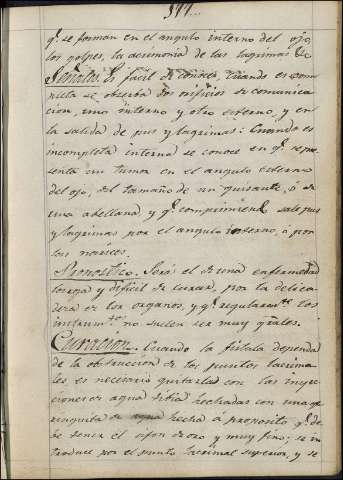 511...
q.e se forman en el angulo interno del ojo,
los golpes, la acrimonia de las lagrimas &c
Señales Es facil de conocer, cuando es com-
pleta se observa dos orificios de comunica
cion, uno interno y otro esterno, y en
la salida de pus y lagrimas: Cuando es
incompleta interna se conoce en q.e repre-
senta un tumor en el angulo esterno
del ojo, del tamaño de un guisante, ó de
una abellana y q.e comprimiend sale pus
y lagrimas por el angulo interno, ó por
las narices.
Pronostico. Será el de una enfermedad
larga y dificil de curar, por la delica
dera de los organos, y q.e regularm.te los
instrum.tos no suelen ser muy g.rales.
Curacion. Cuando la fistula dependa
de la obstruccion de los puntos lacrima
les, es necesario quitarlas con las inyec
ciones de agua tibia hechadas con una ge
ringuita de agua hecha á proposito q.e de
be tener el sifon de oro y muy fino; se in
troduce por el punto lacrimal superior, y se